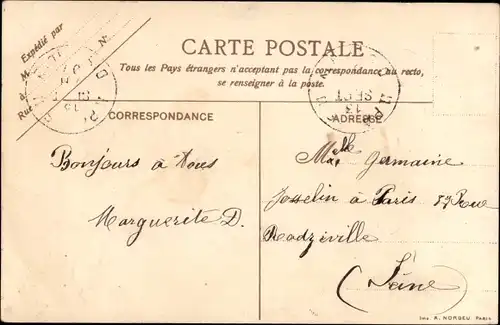 Expédié par
CARTE POSTALE
Tous les Pays étrangers n'acceptant pas la correspondance au recto,
se renseigner à la poste.
CORRESPONDANCE
ADRESSE
Bonjours à tous
Marguerite D.
Melle Germaine
Josselin à Paris 57 Rue
Radziville
(Seine
Imp. A. NORGEU, PARIS